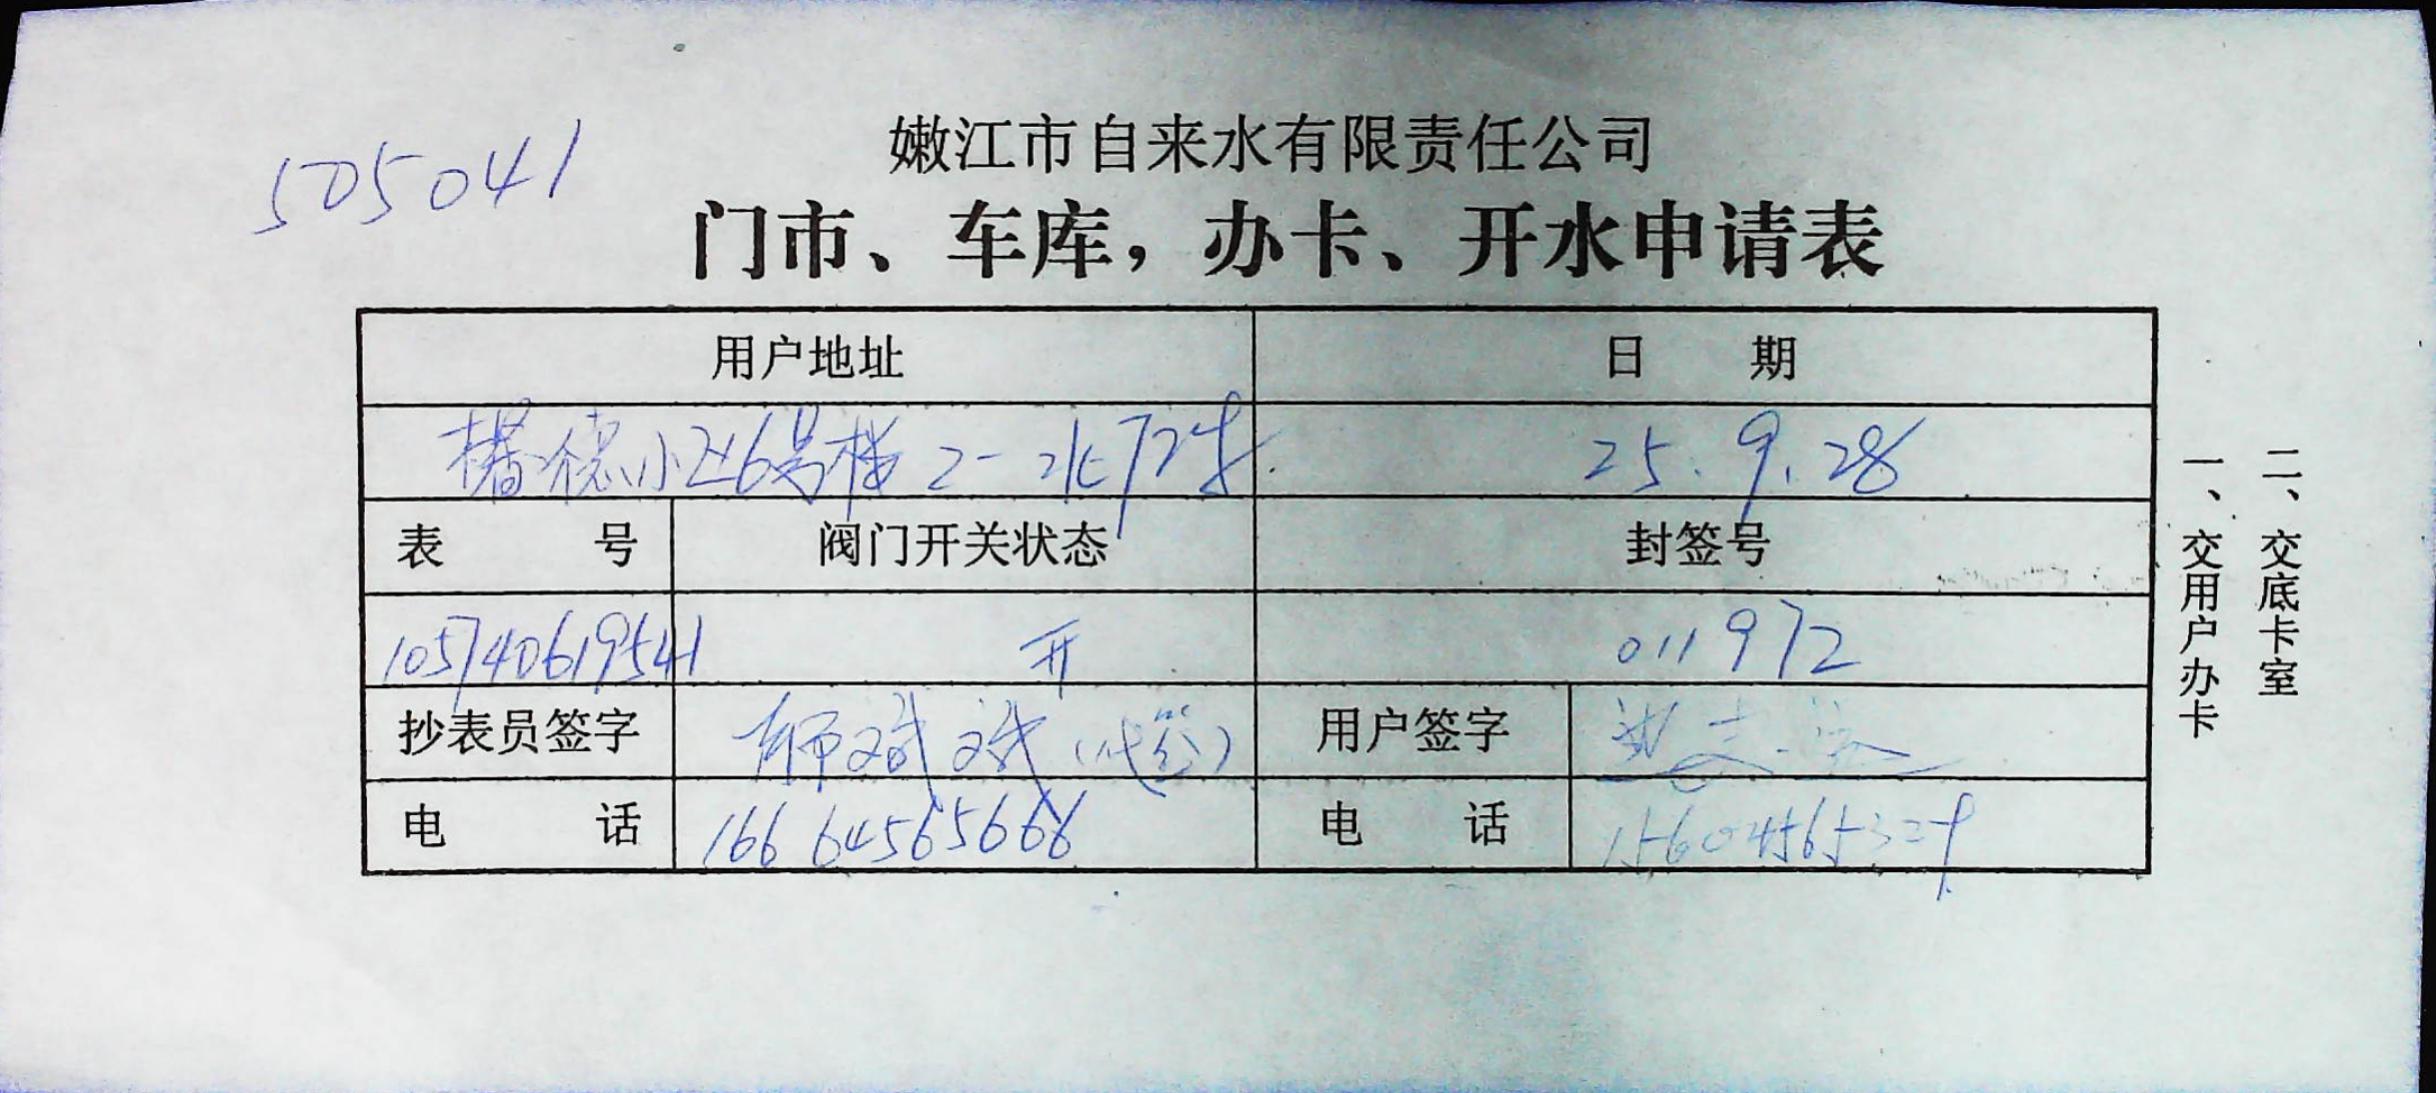 505041
嫩江市自来水有限责任公司
门市、车库，办卡、开水申请表
用户地址 日 期
德小区6号楼2-北 25.9.28
表 号 阀门开关状态 封签号
105740619541 开 011972
抄表员签字 师斌斌（代签） 用户签字
电 话 16664565666 电 话 15604565329
一、交用户办卡
二、交底卡室